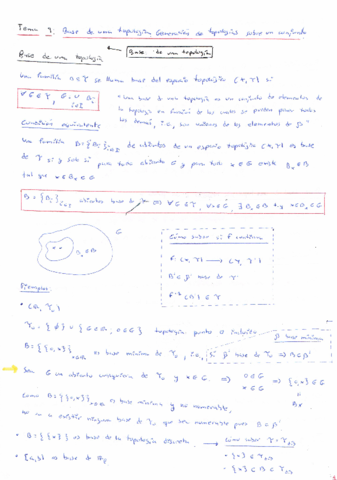 Tema 3: Base de una topología. Generación de topologías sobre un conjunto
Base de una topología
Base de una topología
Una familia B ⊂ Τ se llama base del espacio topológico (X, Τ) si
∀ G ∈ Τ, G = ∪ Bᵢ
i∈I
"Una base de una topología es un conjunto de elementos de
la topología en función de los cuales se pueden poner todos
los demás, i.e., son uniones de los elementos de B"
Condición equivalente
Una familia B = {Bᵢ}ᵢ∈I de abiertos de un espacio topológico (X, Τ) es base
de Τ si y solo si para todo abierto G y para todo x ∈ G existe Bₓ ∈ B
tal que x ∈ Bₓ ⊂ G
B = {Bᵢ}ᵢ∈I abiertos base de Τ ⇔ ∀ G ∈ Τ, ∀ x ∈ G, ∃ Bₓ ∈ B t.q. x ∈ Bₓ ⊂ G
G
Bₓ ∈ B
Cómo saber si f continua
f: (X, Τ) → (Y, Τ')
B' base de Τ'
f⁻¹(B') ∈ Τ
Ejemplos:
Τ₀ = {∅} ∪ {G ⊂ R, 0 ∈ G} topología punto
B base mínima
B = {{0,x}} es base mínima de Τ₀, i.e., si B' base de Τ₀ ⇒ B ⊂ B'
Sea G un abierto cualquiera de Τ₀ y x ∈ G ⇒ 0 ∈ G
x ∈ G ⇒ {0,x} ⊂ G
Como B = {{0,x}} es base mínima y no numerable,
no va a existir ninguna base de Τ₀ que sea numerable pues B ⊂ B'
• B = {{x}} ⇒ base de la topología discreta
Cómo saber
• [a,b) ⇒ base de